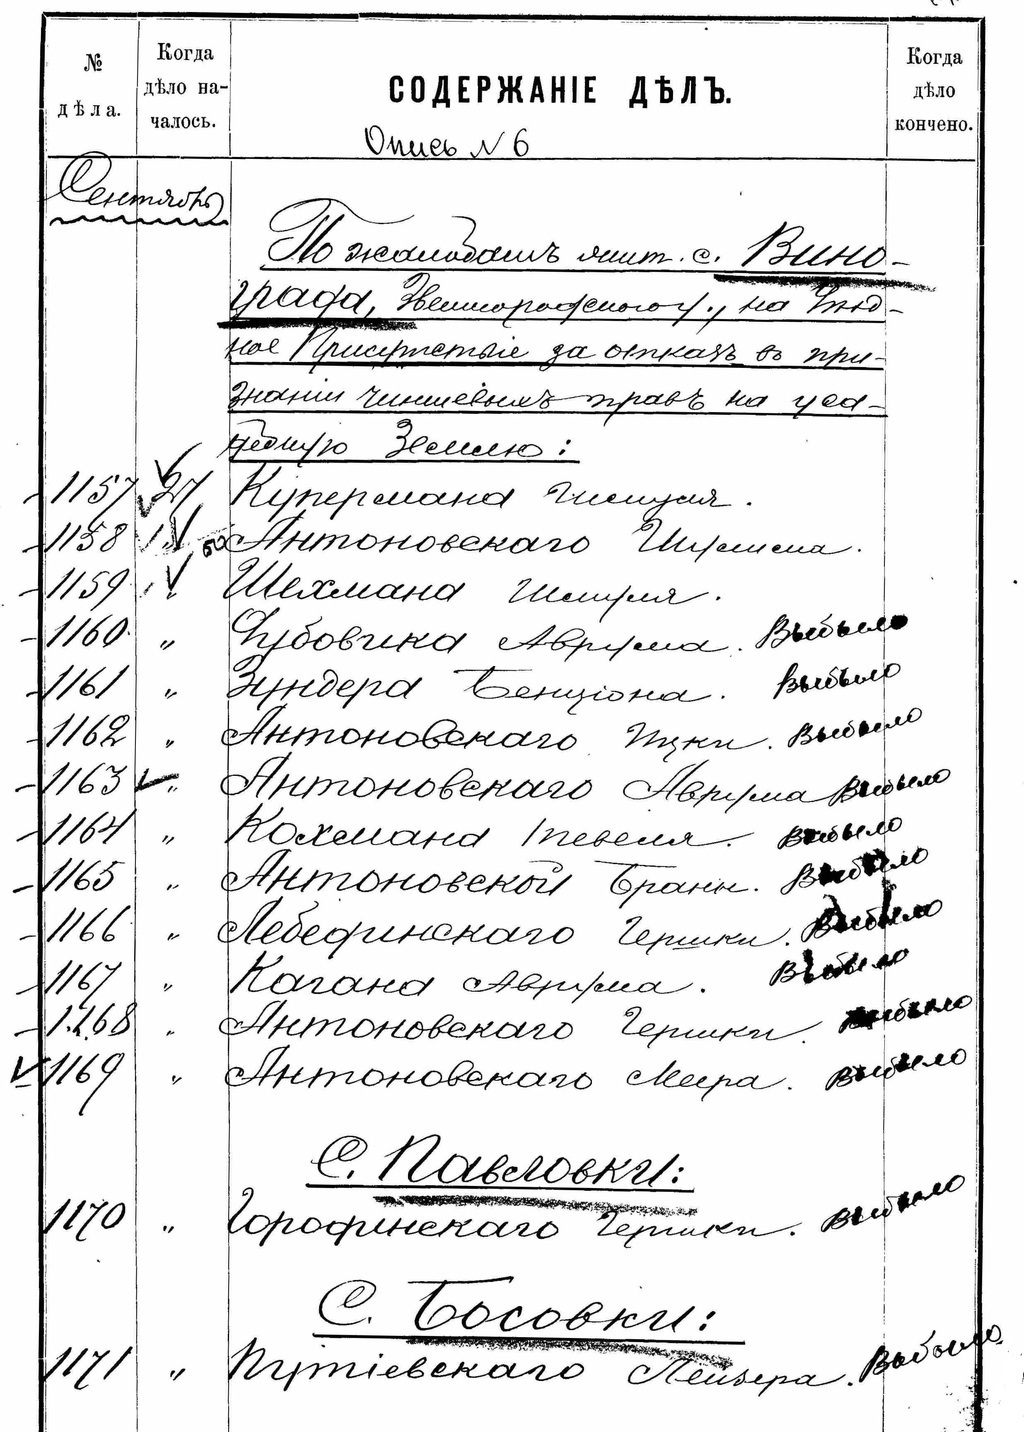 № дѣла.
Когда дѣло началось.
СОДЕРЖАНІЕ ДѢЛЪ.
Когда дѣло кончено.
Опись N 6
Сентябрь
По жалобамъ жит. с. Вино-
града, Звенигородского у., на Уѣзд-
ное Присутствіе за отказъ въ при-
знаніи чиншевыхъ правъ на уса-
дебную землю:
1157 27 Купермана
1158 Антоновскаго
1159 " Шехмана Шмуля.
1160 " Дубовика Аврума. Выбыло
1161 " Зундера Бенціона. Выбыло
1162 " Антоновскаго Ицки. Выбыло
1163 " Антоновскаго Аврума Выбыло
1164 " Кохмана Тевеля. Выбыло
1165 " Антоновской Браны. Выбыло
1166 " Лебединскаго Гершки. Выбыло
1167 " Кагана Аврума. Выбыло
1168 " Антоновскаго Гершки. Выбыло
1169 " Антоновскаго Меера. Выбыло
С. Павловки:
1170 " Городинскаго Гершки. Выбыло
С. Босовки:
1171 " Путіевскаго Лейзера. Выбыло